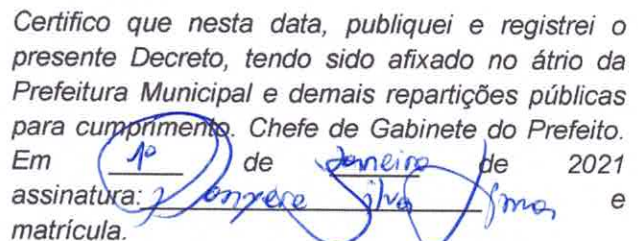 Certifico que nesta data, publiquei e registrei o
presente Decreto, tendo sido afixado no átrio da
Prefeitura Municipal e demais repartições públicas
para cumprimento. Chefe de Gabinete do Prefeito.
Em 1º de Janeiro de 2021
assinatura: Silva e
matrícula.